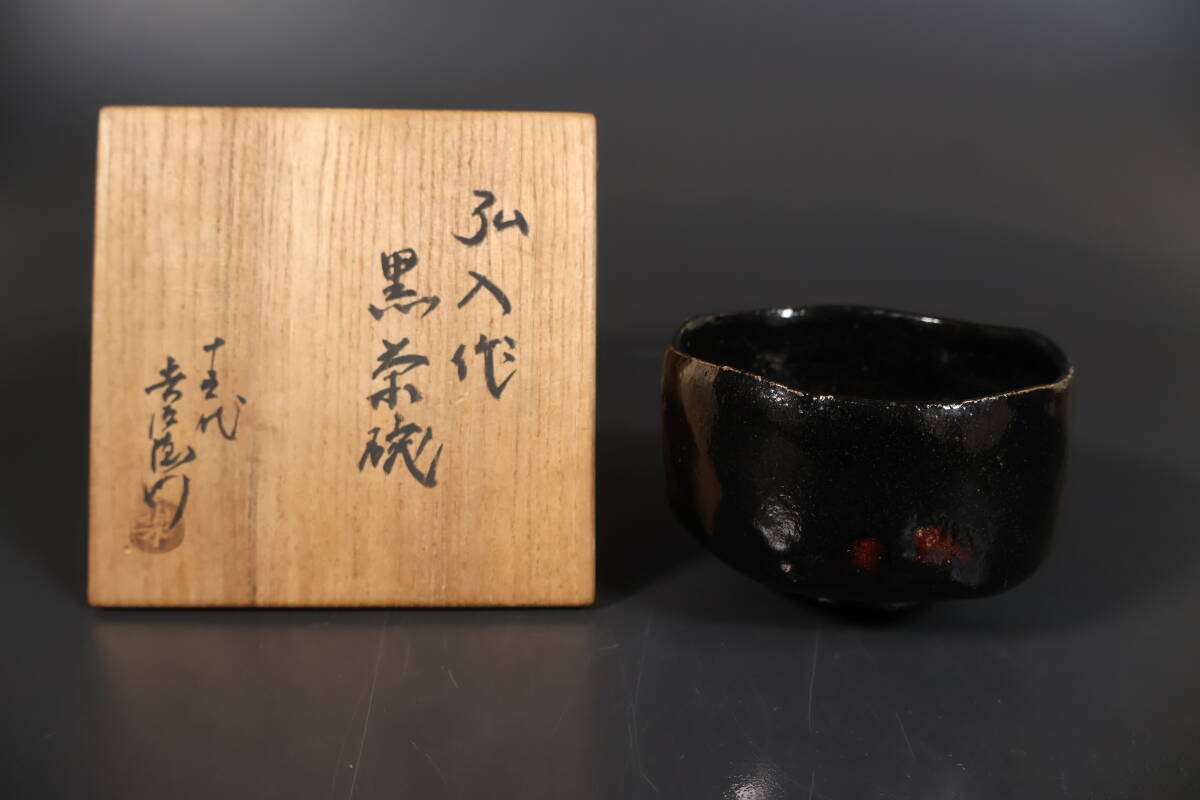 弘入作
黒茶碗
十五代
吉左衛門